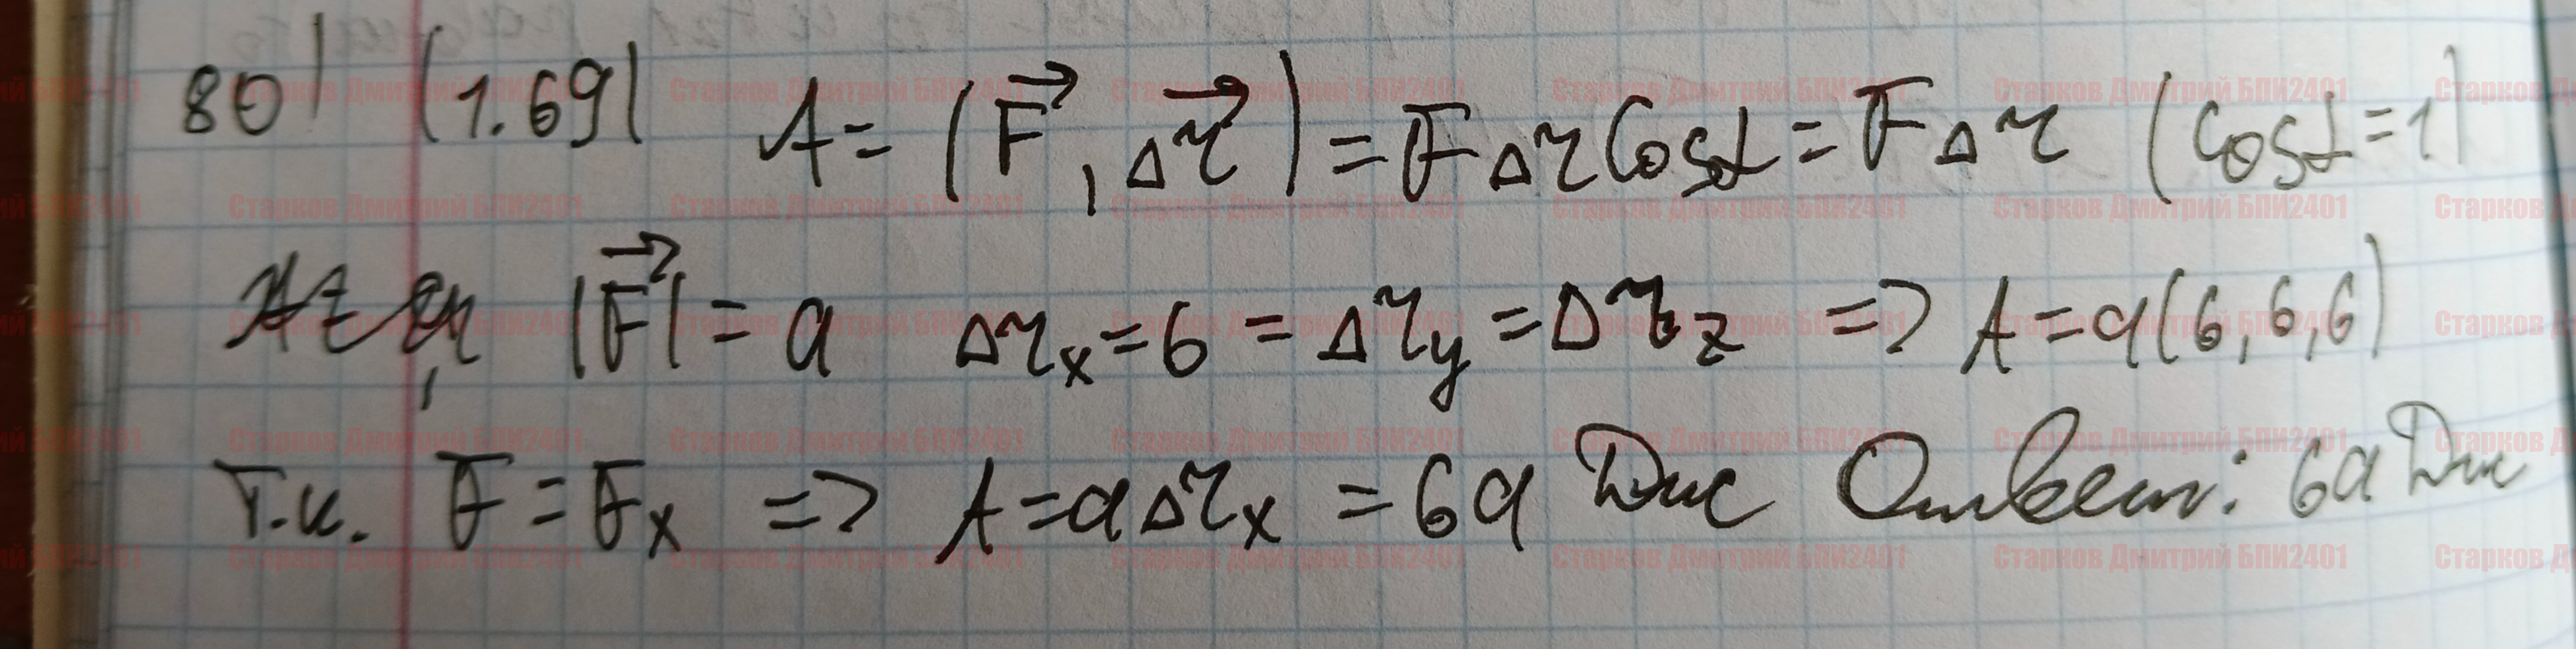 80) (1.69) A = (F⃗, Δr⃗) = FΔr cosα = FΔr (cosα = 1)
|F⃗| = a Δrx = 6 = Δry = Δrz => A = a(6,6,6)
Т.к. F = Fx => A = aΔrx = 6a Дж Ответ: 6a Дж
Старков Дмитрий БПИ2401